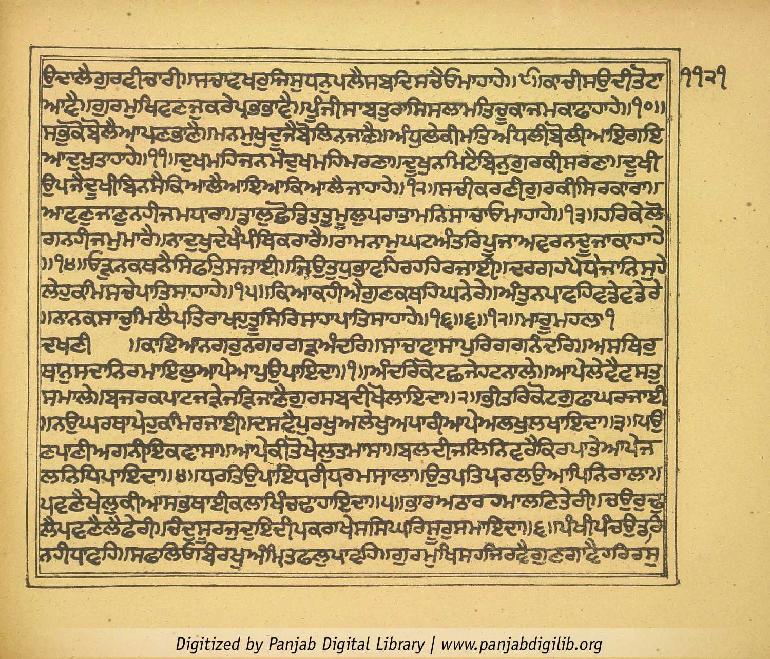 ਉਦਾਲੈਗੁਰਵੀਚਾਰੀ॥ਸਚਾਵਖਰੁਜਿਸੁਧਨੁਪਲੈਸਬਦਿਸਚੈਓਮਾਹਾਹੇ॥੯॥ਕਾਚੀਸਉਦੀਤੋਟਾ ੧੧੨੧
ਆਵੈ॥ਗੁਰਮੁਖਿਵਣਜੁਕਰੇਪ੍ਰਭਭਾਵੈ॥ਪੂੰਜੀਸਾਬਤੁਰਾਸਿਸਲਾਮਤਿਚੂਕਾਜਮਕਾਫਾਹਾਹੇ॥੧੦॥
ਸਭੁਕੋਬੋਲੈਆਪਣਭਾਣੈ॥ਮਨਮੁਖੁਦੂਜੈਬੋਲਿਨਜਾਣੈ॥ਅੰਧੁਲੇਕੀਮਤਿਅੰਧਲੀਬੋਲੀਆਇਗਇ
ਆਦੁਖੁਤਾਹਾਹੇ॥੧੧॥ਦੁਖਮਹਿਜਨਮੈਦੁਖਮਹਿਮਰਣਾ॥ਦੂਖੁਨਮਿਟੈਬਿਨੁਗੁਰਕੀਸਰਣਾ॥ਦੂਖੀ
ਉਪਜੈਦੂਖੀਬਿਨਸੈਕਿਆਲੈਆਇਆਕਿਆਲੈਜਾਹਾਹੇ॥੧੨॥ਸਚੀਕਰਣੀਗੁਰਕੀਸਿਰਕਾਰਾ॥
ਆਵਣੁਜਾਣੁਨਹੀਜਮਧਾਰਾ॥ਡਾਲੁਛੋਡਿਤਤੁਮੂਲੁਪਰਾਤਾਮਨਿਸਾਚਾਓਮਾਹਾਹੇ॥੧੩॥ਹਰਿਕੇਲੋ
ਗਨਹੀਜਮੁਮਾਰੈ॥ਨਾਦੁਖੁਦੇਖੈਪੰਥਿਕਰਾਰੈ॥ਰਾਮਨਾਮੁਘਟਅੰਤਰਿਪੂਜਾਅਵਰੁਨਦੂਜਾਕਾਹਾਹੇ
॥੧੪॥ਓੜੁਨਕਥਨੈਸਿਫਤਿਸਜਾਈ॥ਜਿਉਤੁਧੁਭਾਵਹਿਰਹਹਿਰਜਾਈ॥ਦਰਗਹਪੈਧੇਜਾਨਿਸੁਹੇ
ਲੇਹੁਕਮਿਸਚੇਪਾਤਿਸਾਹਾਹੇ॥੧੫॥ਕਿਆਕਹੀਐਗੁਣਕਥਹਿਘਨੇਰੇ॥ਅੰਤੁਨਪਾਵਹਿਵਡੇਵਡੇਰੇ
॥ਨਾਨਕਸਾਚੁਮਿਲੈਪਤਿਰਾਖਹੁਤੂਸਿਰਿਸਾਹਾਪਾਤਿਸਾਹਾਹੇ॥੧੬॥੬॥੧੨॥ਮਾਰੂਮਹਲਾ੧
ਦਖਣੀ ॥ਕਾਇਆਨਗਰੁਨਗਰਗੜਅੰਦਰਿ॥ਸਾਚਾਵਾਸਾਪੁਰਿਗਗਨੰਦਰਿ॥ਅਸਥਿਰੁ
ਥਾਨੁਸਦਾਨਿਰਮਾਇਲੁਆਪੇਆਪੁਉਪਾਇਦਾ॥੧॥ਅੰਦਰਿਕੋਟਛਜੇਹਟਨਾਲੇ॥ਆਪੇਲੇਵੈਵਸਤੁ
ਸਮਾਲੇ॥ਬਜਰਕਪਾਟਜੜੇਜੜਿਜਾਣੈਗੁਰਸਬਦੀਖੋਲਾਇਦਾ॥੨॥ਭੀਤਰਿਕੋਟਗੁਫਾਘਰਜਾਈ
॥ਨਉਘਰਥਾਪੇਹੁਕਮਿਰਜਾਈ॥ਦਸਵੈਪੁਰਖੁਅਲੇਖੁਅਪਾਰੀਆਪੇਅਲਖੁਲਖਾਇਦਾ॥੩॥ਪਉ
ਣਪਾਣੀਅਗਨੀਇਕਵਾਸਾ॥ਆਪੇਕੀਤੋਖੇਲੁਤਮਾਸਾ॥ਬਲਦੀਜਲਿਨਿਵਰੈਕਿਰਪਾਤੇਆਪੇਜ
ਲਨਿਧਿਪਾਇਦਾ॥੪॥ਧਰਤਿਉਪਾਇਧਰੀਧਰਮਸਾਲਾ॥ਉਤਪਤਿਪਰਲਉਆਪਿਨਿਰਾਲਾ॥
ਪਵਣੈਖੇਲੁਕੀਆਸਭਥਾਈਕਲਾਖਿੰਚਿਢਾਹਾਇਦਾ॥੫॥ਭਾਰਅਠਾਰਹਮਾਲਣਿਤੇਰੀ॥ਚਉਰੁਢੁ
ਲੈਪਵਣੈਲੈਫੇਰੀ॥ਚੰਦੁਸੂਰਜੁਦੁਇਦੀਪਕਰਾਖੇਸਸਿਘਰਿਸੂਰੁਸਮਾਇਦਾ॥੬॥ਪੰਖੀਪੰਚਉਡਰਿ
ਨਹੀਧਾਵਹਿ॥ਸਫਲਿਓਬਿਰਖੁਅੰਮ੍ਰਿਤਫਲੁਪਾਵਹਿ॥ਗੁਰਮੁਖਿਸਹਜਿਰਵੈਗੁਣਗਾਵੈਹਰਿਰਸੁ
Digitized by Panjab Digital Library | www.panjabdigilib.org